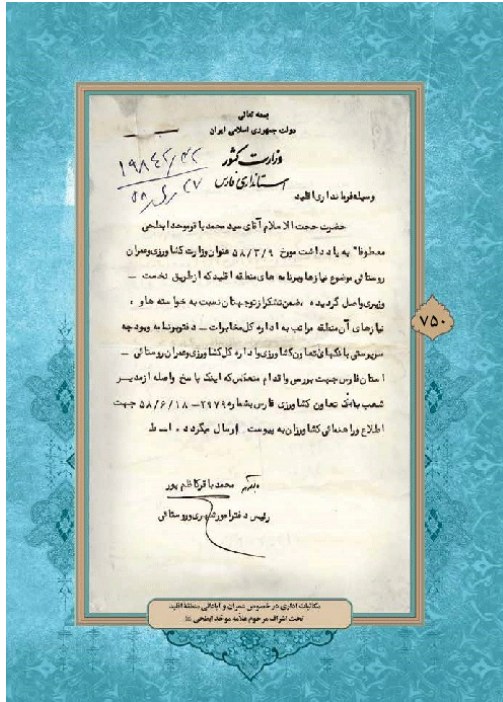 بسمه تعالی
دولت جمهوری اسلامی ایران
وزارت کشور
استانداری فارس
وسیله فرمانداری اقلید
حضرت حجت الاسلام آقای سید محمد باقر موحد ابطحی
معطوفا" به یادداشت مورخ ۵۸/۳/۹ عنوان وزارت کشاورزی و عمران
روستائی موضوع نیازها و برنامه های منطقه اقلید که از طریق نخست –
وزیری واصل گردیده، ضمن تشکر از توجهتان نسبت به خواسته ها و
نیازهای آن منطقه مراتب به اداره کل مخابرات – دفتر برنامه و بودجه
سرپرستی بانکهای تعاون کشاورزی و اداره کل کشاورزی و عمران روستائی –
استان فارس جهت بررسی و اقدام منعکس که اینک پاسخ واصله از مدیر
شعب بانک تعاون کشاورزی فارس بشماره ۲۹۷۹-۵۸/۶/۱۸ جهت
اطلاع و راهنمائی کشاورزان به پیوست ارسال میگردد، اسط
محمد باقر کاظم پور
رئیس دفتر امور شهری و روستائی
۷۵۰
مکاتبات اداری در خصوص عمران و آبادانی منطقه اقلید
تحت اشراف مرحوم علامه موحد ابطحی